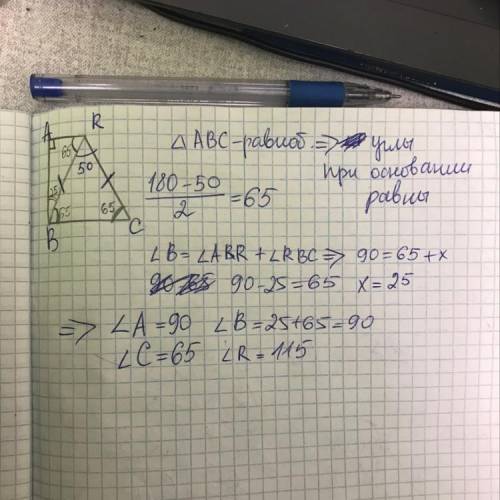 A R
65
50
25
65 65
B C
△ ABC-равноб. => углы
при основании
равны
180-50
2
=65
∠B=∠ABR+∠RBC=> 90=65+x
90-25=65 x=25
=> ∠A=90 ∠B=25+65=90
∠C=65 ∠R=115